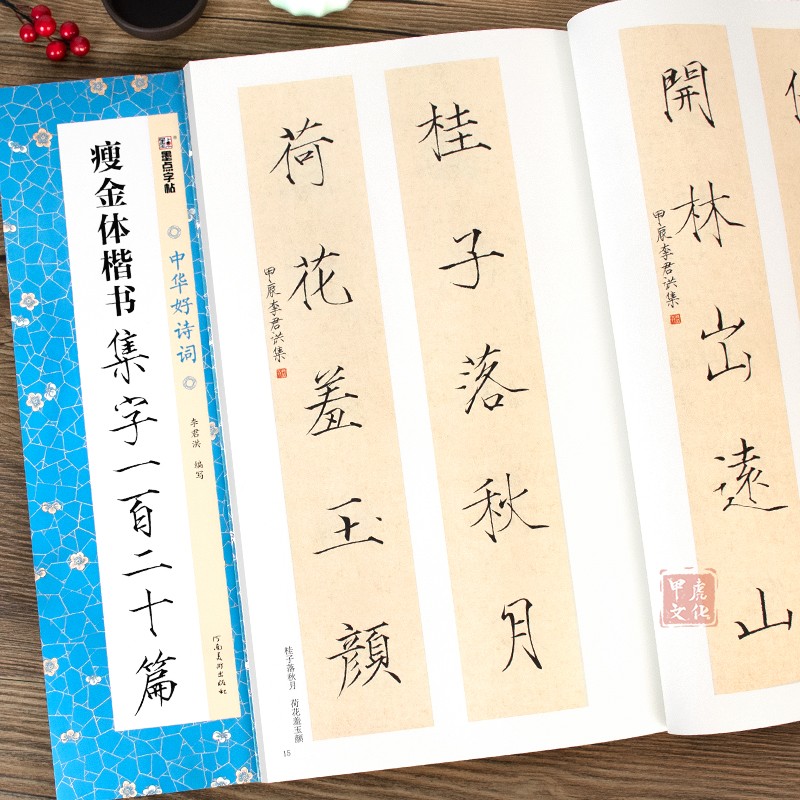 墨点字帖
中华好诗词
李君洪 编写
河南美术出版社
瘦金体楷书集字一百二十篇
桂子落秋月
荷花羞玉顏
甲辰李君洪集
桂子落秋月 荷花羞玉颜
15
開林出遠山
甲辰李君洪集
甲虎文化